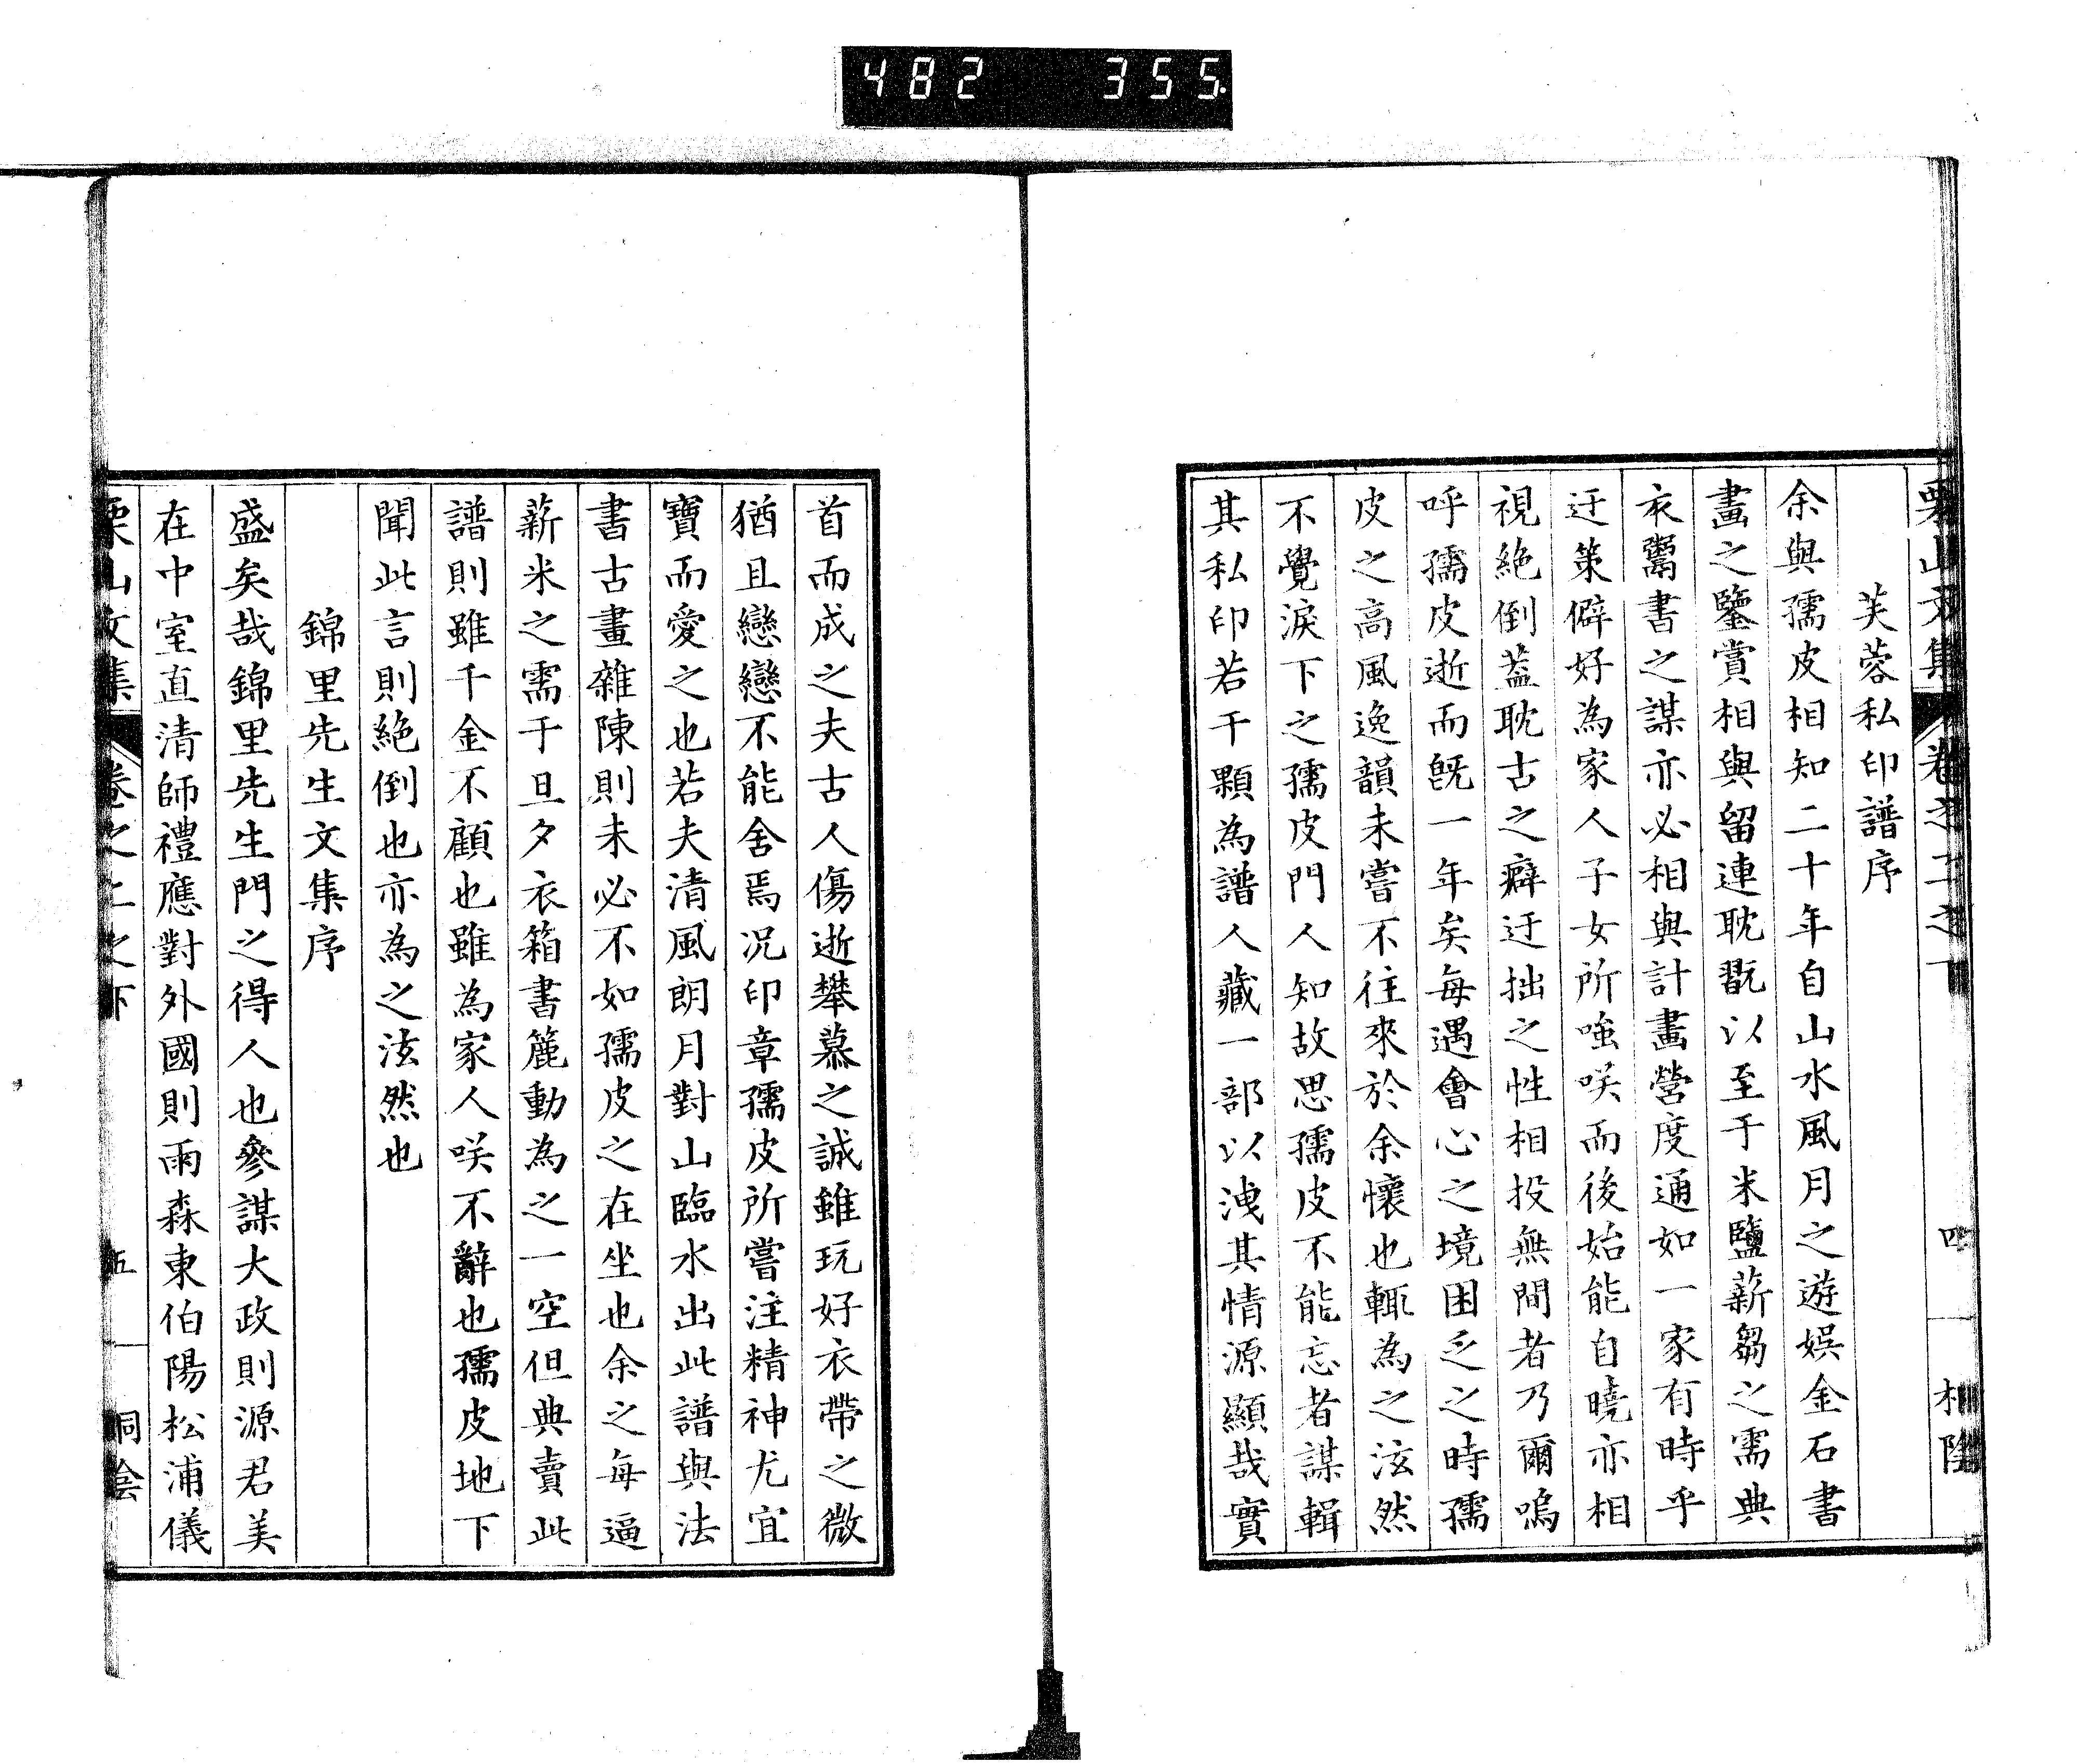 482 355
栗山文集 卷之二之下 四
芙蓉私印譜序
余與孺皮相知二十年自山水風月之遊娯金石書
畫之鑒賞相與留連耽翫以至于米鹽薪芻之需典
衣鬻書之謀亦必相與計畫營度通如一家有時乎
迂策僻好為家人子女所嗤咲而後始能自曉亦相
視絶倒蓋耽古之癖迂拙之性相投無間者乃爾嗚
呼孺皮逝而既一年矣每遇會心之境困乏之時孺
皮之高風逸韻未嘗不往來於余懷也輒為之泫然
不覺淚下之孺皮門人知故思孺皮不能忘者謀輯
其私印若干顆為譜人藏一部以洩其情源顯哉實
首而成之夫古人傷逝攀慕之誠雖玩好衣帶之微
猶且戀戀不能舍焉况印章孺皮所嘗注精神尤宜
寶而愛之也若夫清風朗月對山臨水出此譜與法
書古畫雜陳則未必不如孺皮之在坐也余之每逼
薪米之需于旦夕衣箱書簏動為之一空但典賣此
譜則雖千金不顧也雖為家人咲不辭也孺皮地下
聞此言則絶倒也亦為之泫然也
錦里先生文集序
盛矣哉錦里先生門之得人也參謀大政則源君美
在中室直清師禮應對外國則雨森東伯陽松浦儀
栗山文集 卷之二之下 五